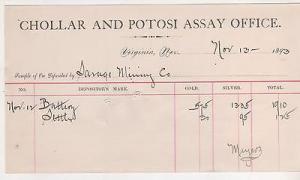 CHOLLAR AND POTOSI ASSAY OFFICE.
Virginia, Nev. Nov 13 - 1873
Sample of Ore Deposited by Savage Mining Co
DATE. DEPOSITOR'S MARK. GOLD. SILVER. TOTAL.
Nov. 12 Battery 5 75 13 35 19 10
30 95 1 25